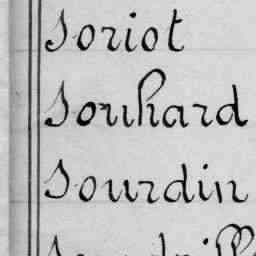 Soriot
Souhard
Sourdin